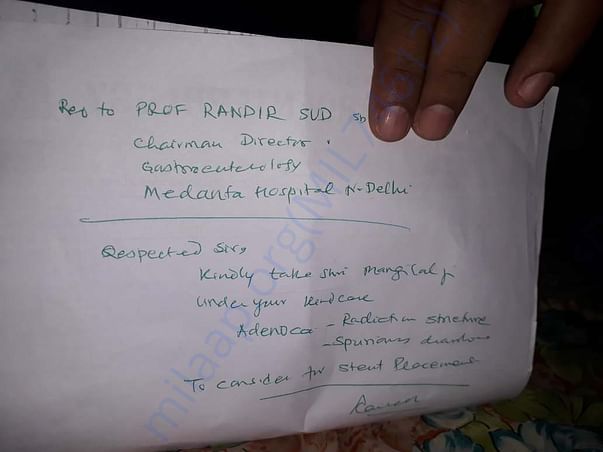 Ref to PROF RANDIR SUD Sb
Chairman Director.
Gastroenterology
Medanta Hospital N-Delhi
Respected Sir,
Kindly take Shri Mangilal ji
under your kind care
Adenoca - Radiation stricture
- Spurious diarrhoea
To consider for stent Placement
milaap.org(MIL